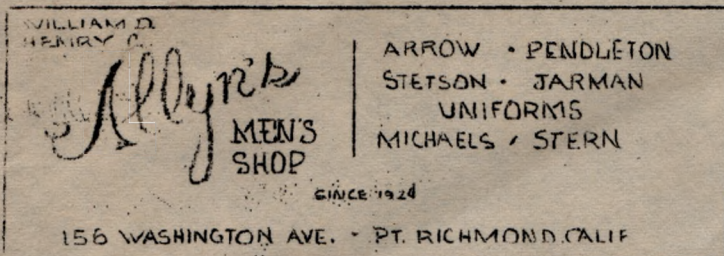 WILLIAM D.
HENRY C.
Allyn's
MEN'S
SHOP
ARROW · PENDLETON
STETSON · JARMAN
UNIFORMS
MICHAELS / STERN
SINCE 1924
156 WASHINGTON AVE. - PT. RICHMOND, CALIF